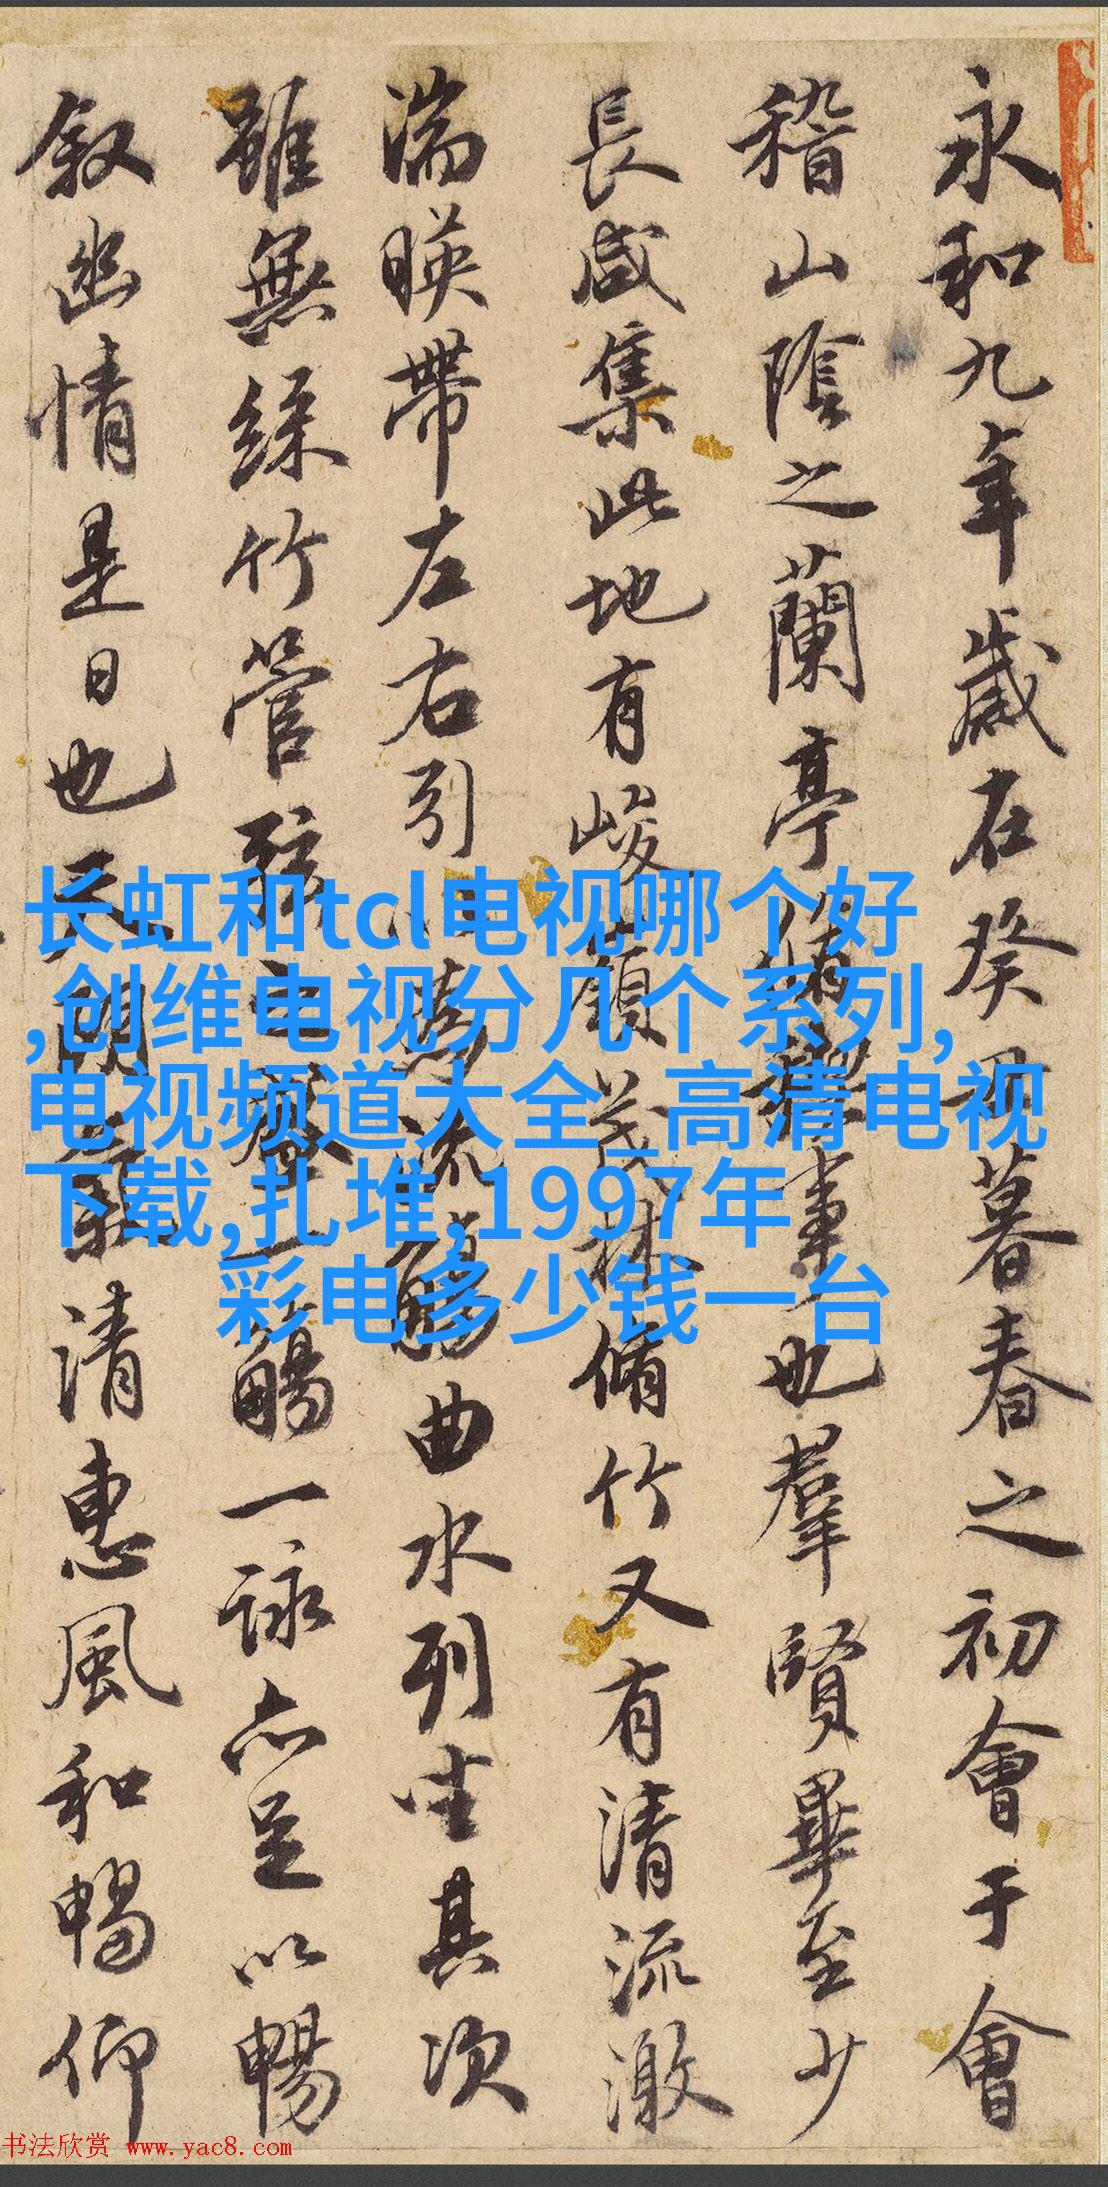 永和九年歲在癸丑暮春之初會于會
稽山陰之蘭亭脩禊事也羣賢畢至少
長咸集此地有峻嶺茂林脩竹又有清流激
湍暎帶左右引以為流觴曲水列坐其次
雖無絲竹管弦之盛一觴一詠亦足以暢
叙幽情是日也天朗氣清惠風和暢仰
长虹和tcl电视哪个好
,创维电视分几个系列,
电视频道大全_高清电视
下载,扎堆,1997年
彩电多少钱一台
书法欣赏 www.yac8.com